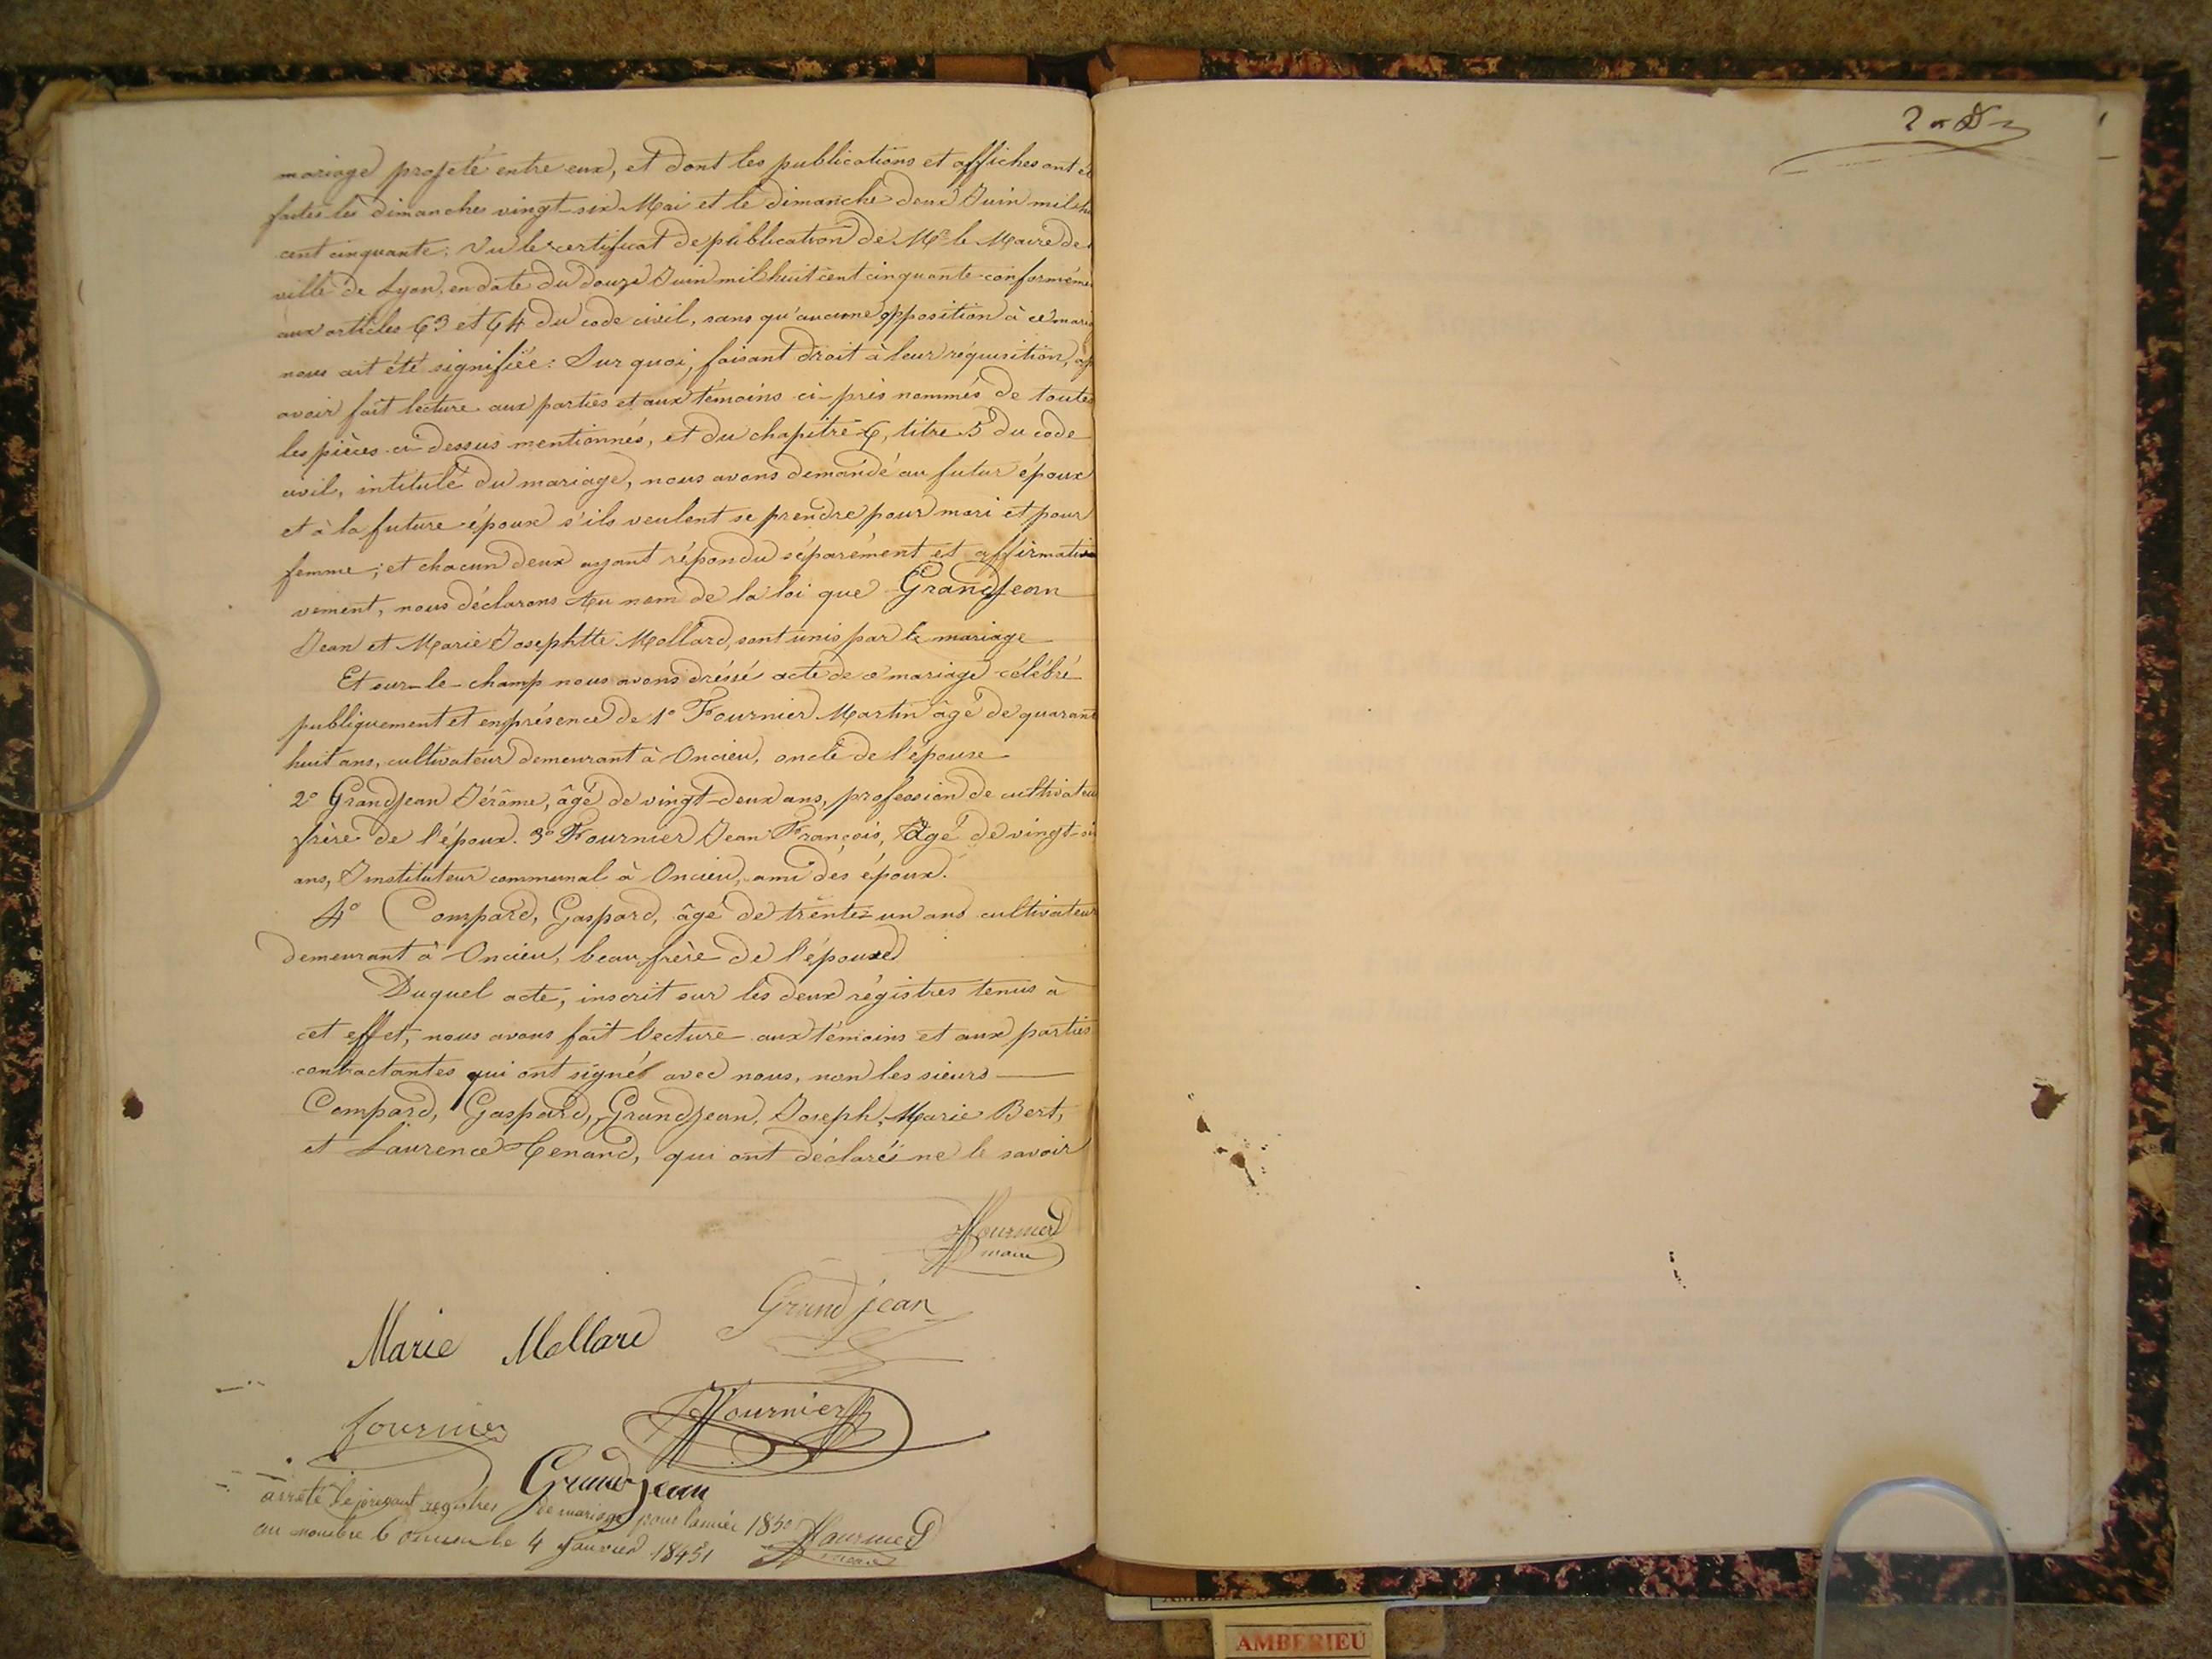 mariage projeté entre eux, et dont les publications et affiches ont é
faites les dimanches vingt-six Mai et le dimanche deux Juin mil hu
cent cinquante; Vu le certificat de publication de Mr le Maire de
ville de Lyon, en date du douze Juin mil huit cent cinquante conforméme
aux articles 63 et 64 du code civil, sans qu'aucune opposition à ce maria
nous ait été signifiée: Sur quoi, faisant droit à leur réquisition, ap
avoir fait lecture aux parties et aux témoins ci-près nommés de toutes
les pièces ci-dessus mentionnés, et du chapitre 6, titre 5 du code
civil, intitulé du mariage, nous avons demandé au futur époux
et à la future époux s'ils veulent se prendre pour mari et pour
femme; et chacun deux ayant répondu séparément et affirmati
vement, nous déclarons Au nom de la loi que Grandjean
Jean et Marie Josephtte Mollard, sont unis par le mariage
Et sur-le-champ nous avons dréssé acte de ce mariage célébré
publiquement et en présence de 1° Fournier Martin âgé de quarant
huit ans, cultivateur demeurant à Oncieu, oncle de l'épouse
2° Grandjean Jérôme, âgé de vingt-deux ans, profession de cultivateu
frère de l'époux. 3° Fournier Jean François, Agé de vingt-
ans, Instituteur communal à Oncieu, ami des époux.
4° Compard, Gaspard, âgé de trente-un ans cultivateur
demeurant à Oncieu, beau frère de l'épouse
Duquel acte, inscrit sur les deux régistres tenus à
cet effet, nous avons fait lecture aux témoins et aux parties
contractantes qui ont signés avec nous, non les sieurs
Compard, Gaspard, Grandjean, Joseph, Marie Bert,
et Laurence Tenand, qui ont déclarés ne le savoir
Fournier
maire
Grand jean
Marie Mollard
fournier
Fournier
Grandjean
arrêté le présent registres de mariage pour l'année 1850
au nombre 6 oncieu le 4 Janvier 1851
Fournier
maire
AMBERIEU